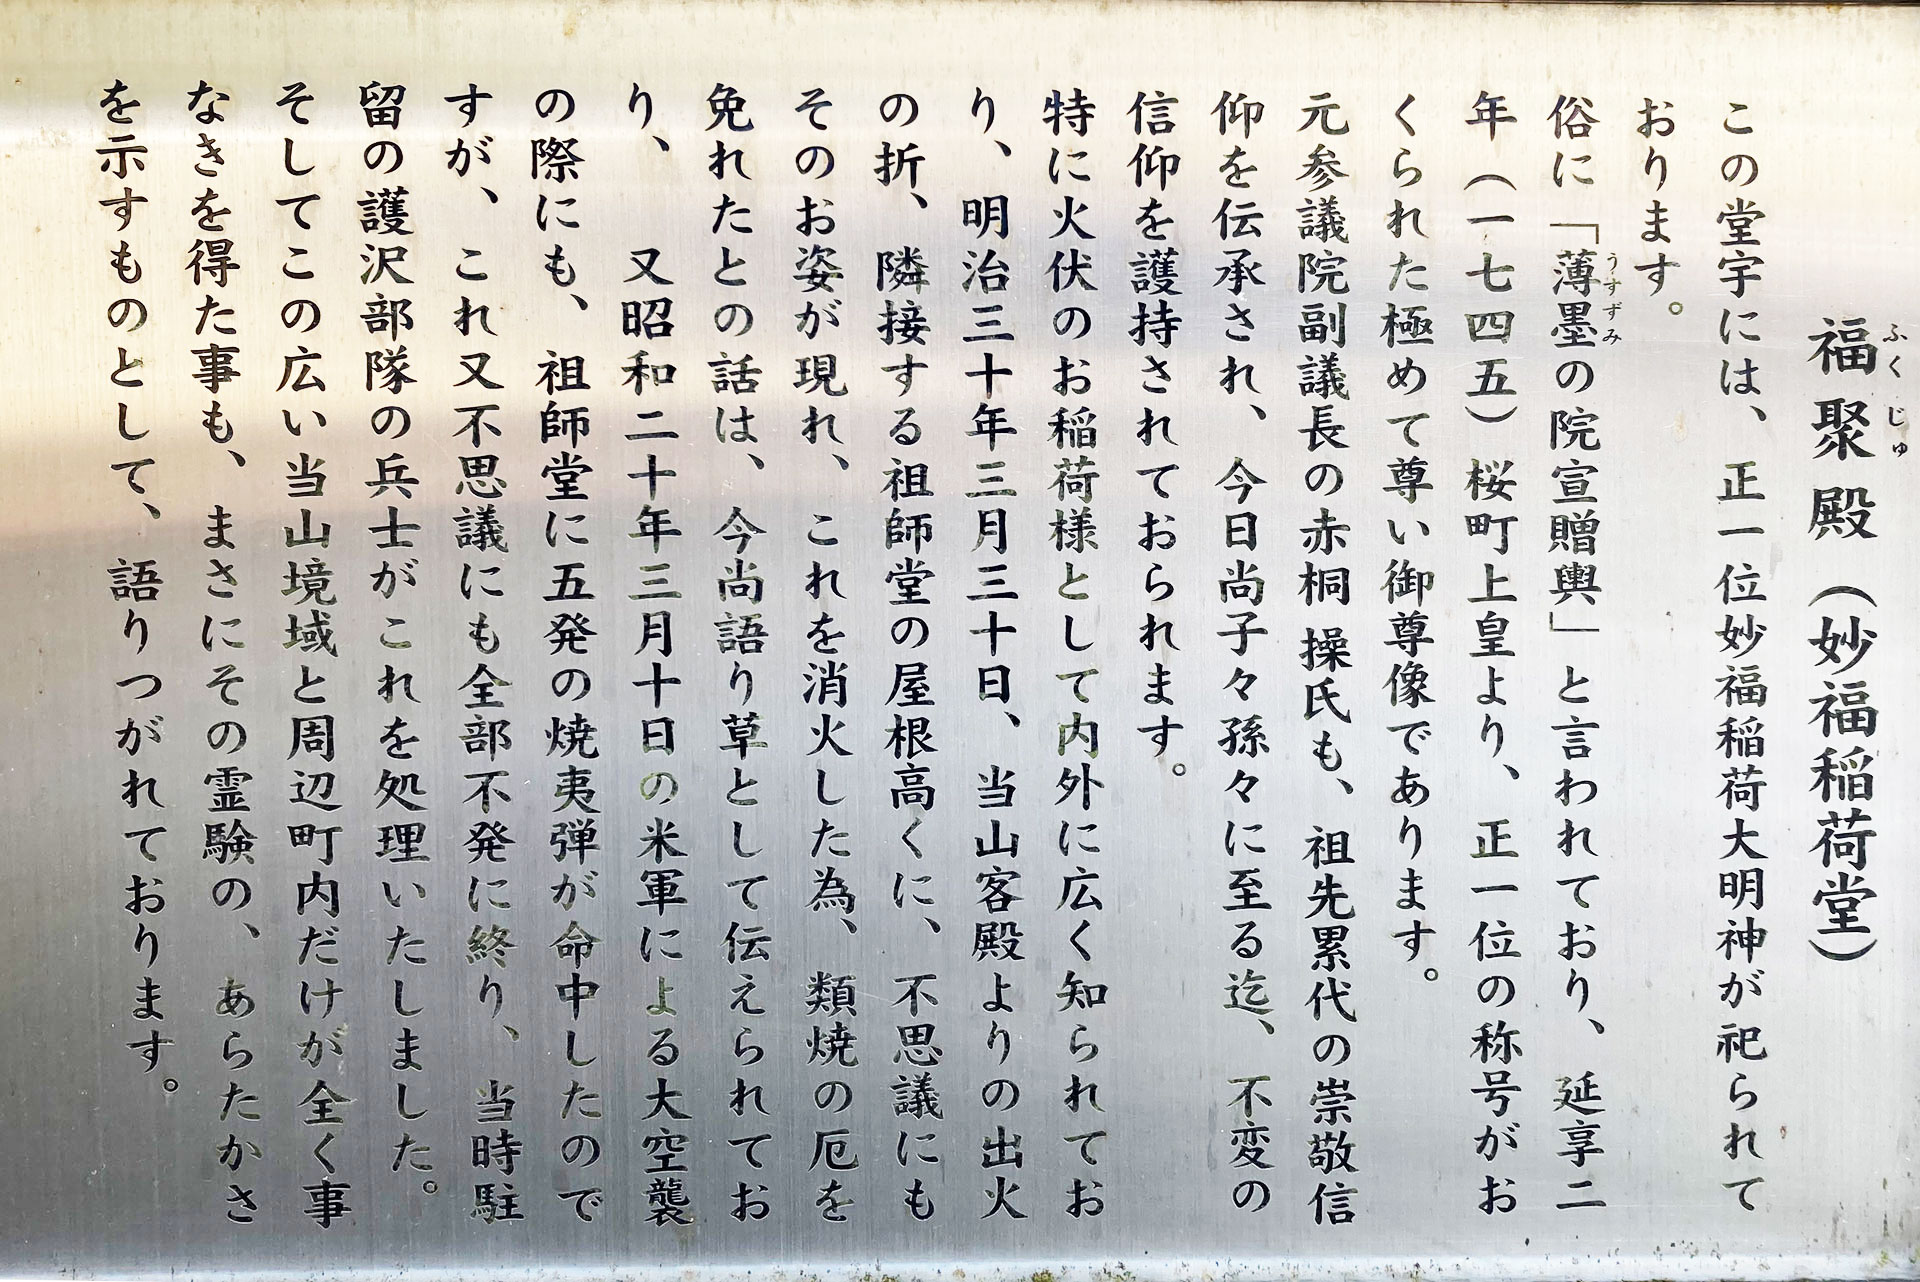 福聚殿（妙福稲荷堂）
ふくじゅ
この堂宇には、正一位妙福稲荷大明神が祀られて
おります。
俗に「薄墨の院宣贈輿」と言われており、延享二
うすずみ
年（一七四五）桜町上皇より、正一位の称号がお
くられた極めて尊い御尊像であります。
元参議院副議長の赤桐操氏も、祖先累代の崇敬信
仰を伝承され、今日尚子々孫々に至る迄、不変の
信仰を護持されておられます。
特に火伏のお稲荷様として内外に広く知られてお
り、明治三十年三月三十日、当山客殿よりの出火
の折、隣接する祖師堂の屋根高くに、不思議にも
そのお姿が現れ、これを消火した為、類焼の厄を
免れたとの話は、今尚語り草として伝えられてお
り、又昭和二十年三月十日の米軍による大空襲
の際にも、祖師堂に五発の焼夷弾が命中したので
すが、これ又不思議にも全部不発に終り、当時駐
留の護沢部隊の兵士がこれを処理いたしました。
そしてこの広い当山境域と周辺町内だけが全く事
なきを得た事も、まさにその霊験の、あらたかさ
を示すものとして、語りつがれております。